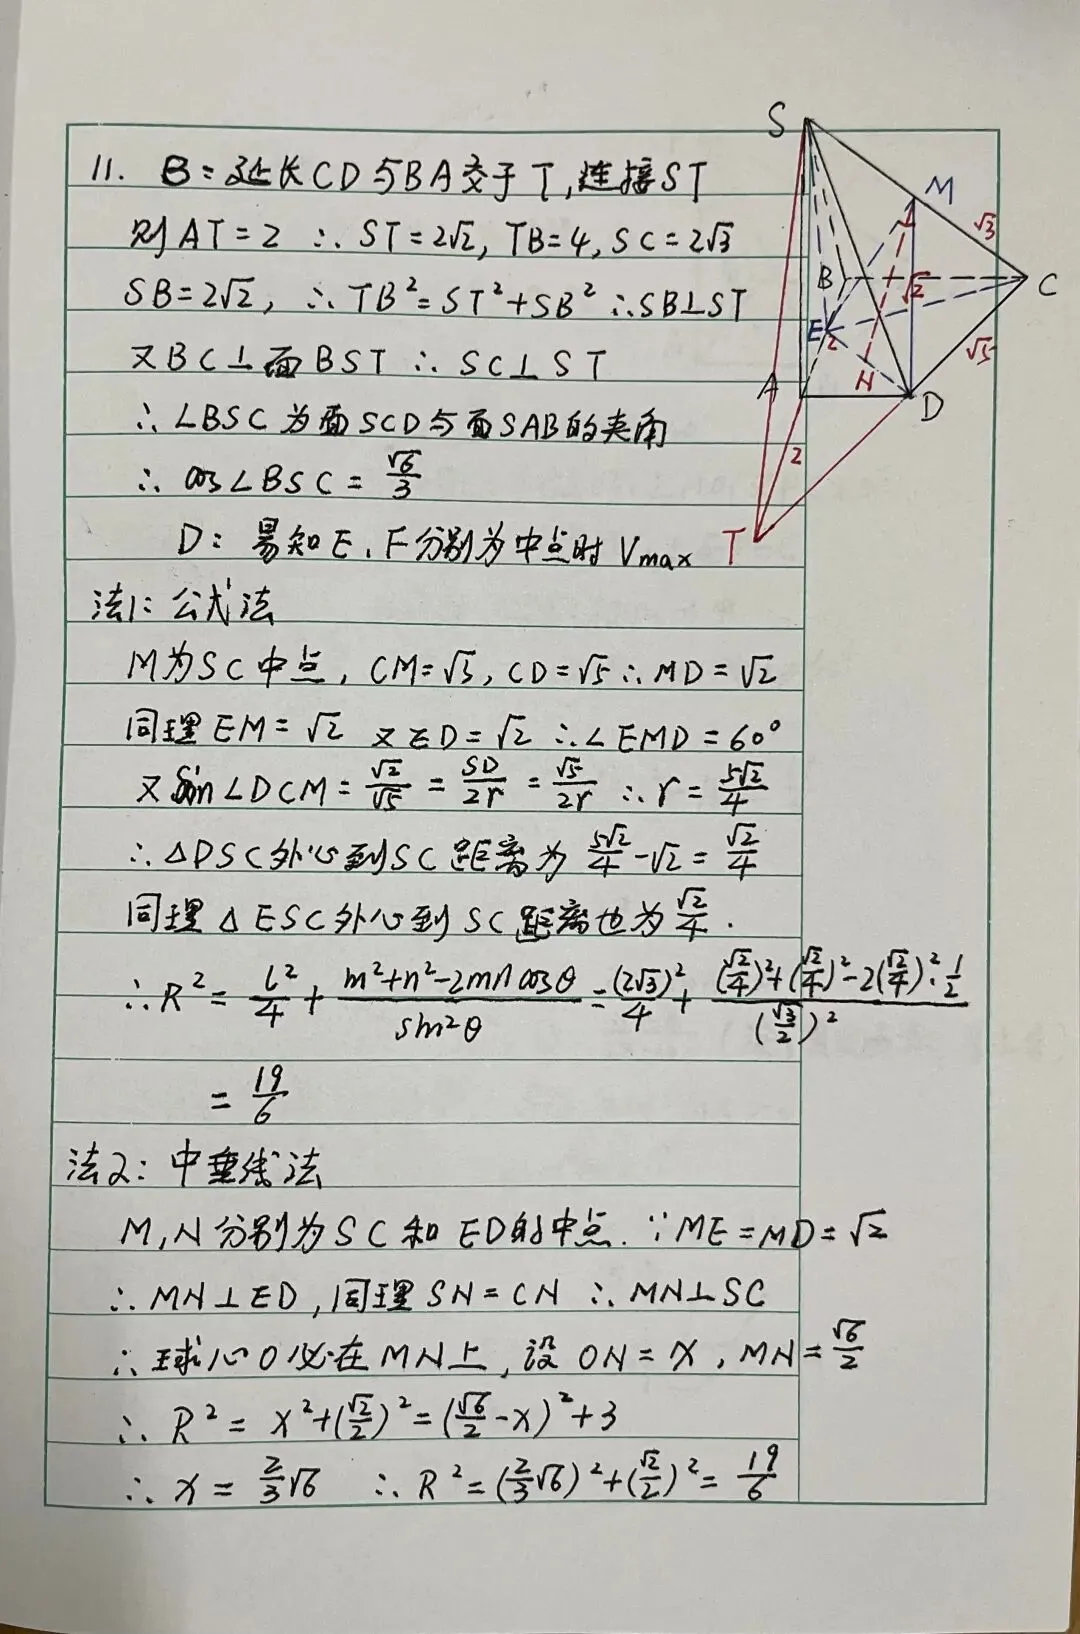 11. B：延长CD与BA交于T,连接ST
则AT=2 ∴ST=2√2, TB=4, SC=2√3
SB=2√2, ∴TB²=ST²+SB² ∴SB⊥ST
又BC⊥面BST ∴SC⊥ST
∴∠BSC为面SCD与面SAB的夹角
∴cos∠BSC=√6/3
D：易知E、F分别为中点时Vmax
法1：公式法
M为SC中点, CM=√3, CD=√5 ∴MD=√2
同理EM=√2 又ED=√2 ∴∠EMD=60°
又sin∠DCM=√2/√5=SD/2r=√5/2r ∴r=5√2/4
∴△DSC外心到SC距离为 5√2/4-√2=√2/4
同理△ESC外心到SC距离也为√2/4.
∴R²=l²/4+(m²+n²-2mncosθ)/sin²θ=(2√3)²/4+((√2/4)²+(√2/4)²-2(√2/4)²·1/2)/(√3/2)²
=19/6
法2：中垂线法
M,N分别为SC和ED的中点.∵ME=MD=√2
∴MN⊥ED,同理SN=CN ∴MN⊥SC
∴球心O必在MN上,设ON=x, MN=√6/2
∴R²=x²+(√2/2)²=(√6/2-x)²+3
∴x=2/3√6 ∴R²=(2/3√6)²+(√2/2)²=19/6
S
M
√3
B
C
√2
E
2
√5
A
N
D
2
T